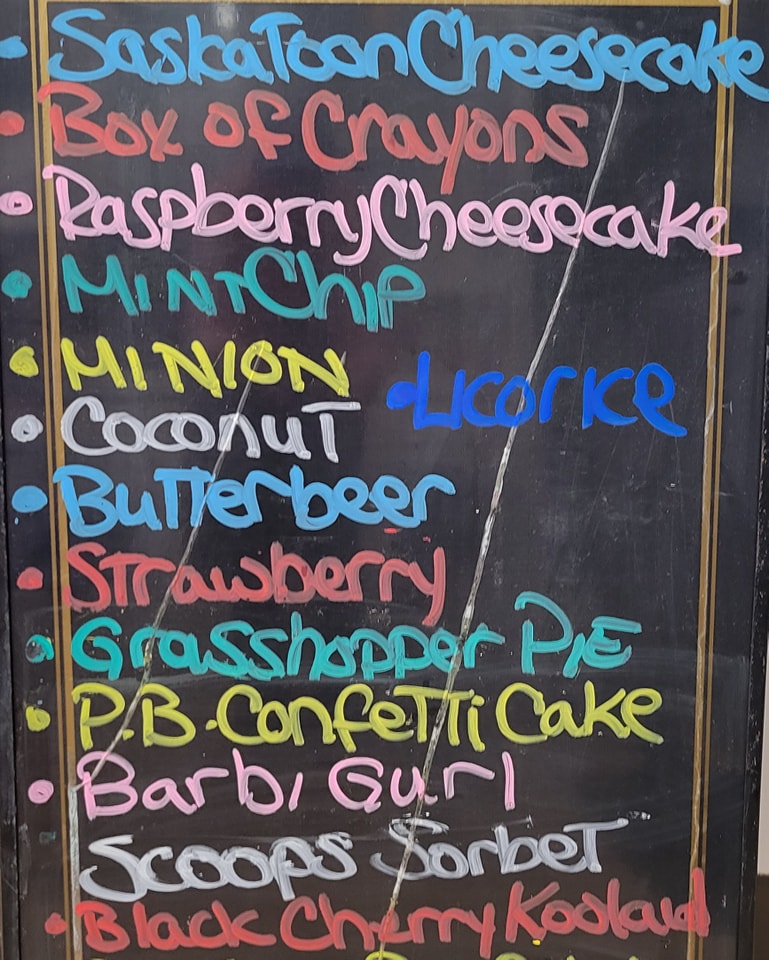 Saskatoon Cheesecake
Box of Crayons
Raspberry Cheesecake
Mint Chip
Minion
Licorice
Coconut
Butterbeer
Strawberry
Grasshopper Pie
P.B. Confetti Cake
Barbi Gurl
Scoops Sorbet
Black Cherry Koolaid